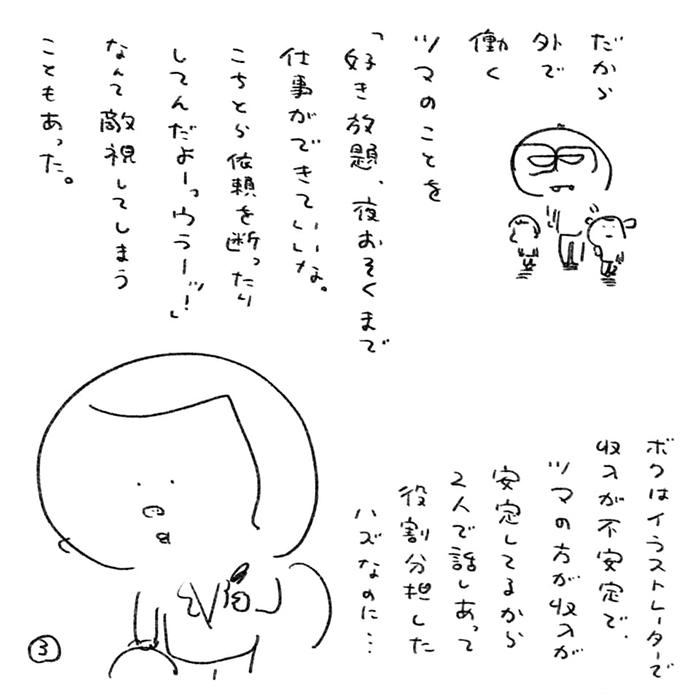 だから
外で
働く
ツマのことを
「好き放題、夜おそくまで
仕事ができていいな。
こちとら依頼を断ったり
してんだよーっウラーッ!」
なんて敵視してしまう
こともあった。
ボクはイラストレーターで
収入が不安定で、
ツマの方が収入が
安定してるから
2人で話しあって
役割分担した
ハズなのに…
3